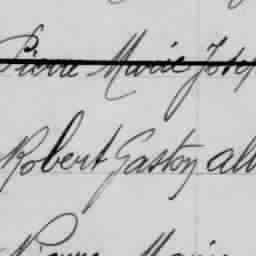 Pierre Marie Josep
Robert Gaston alb
Pierre Marie